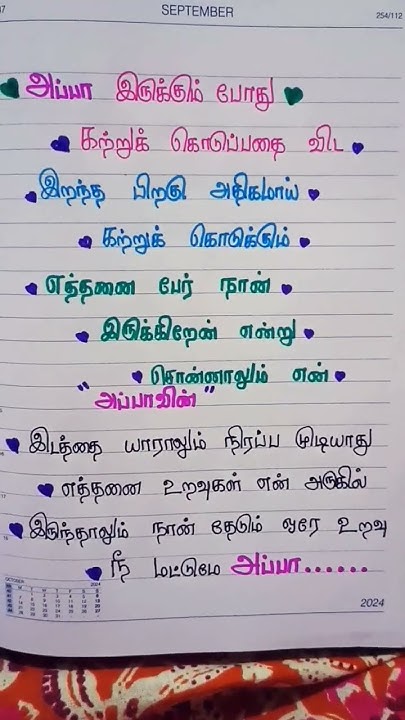 SEPTEMBER
254/112
அப்பா இருக்கும் போது
கற்றுக் கொடுப்பதை விட
இறந்த பிறகு அதிகமாய்
கற்றுக் கொடுக்கும்
எத்தனை பேர் நான்
இருக்கிறேன் என்று
சொன்னாலும் என்
"அப்பாவின்"
இடத்தை யாராலும் நிரப்ப முடியாது
எத்தனை உறவுகள் என் அருகில்
இருந்தாலும் நான் தேடும் ஒரே உறவு
நீ மட்டுமே அப்பா......
OCTOBER 2024
2024